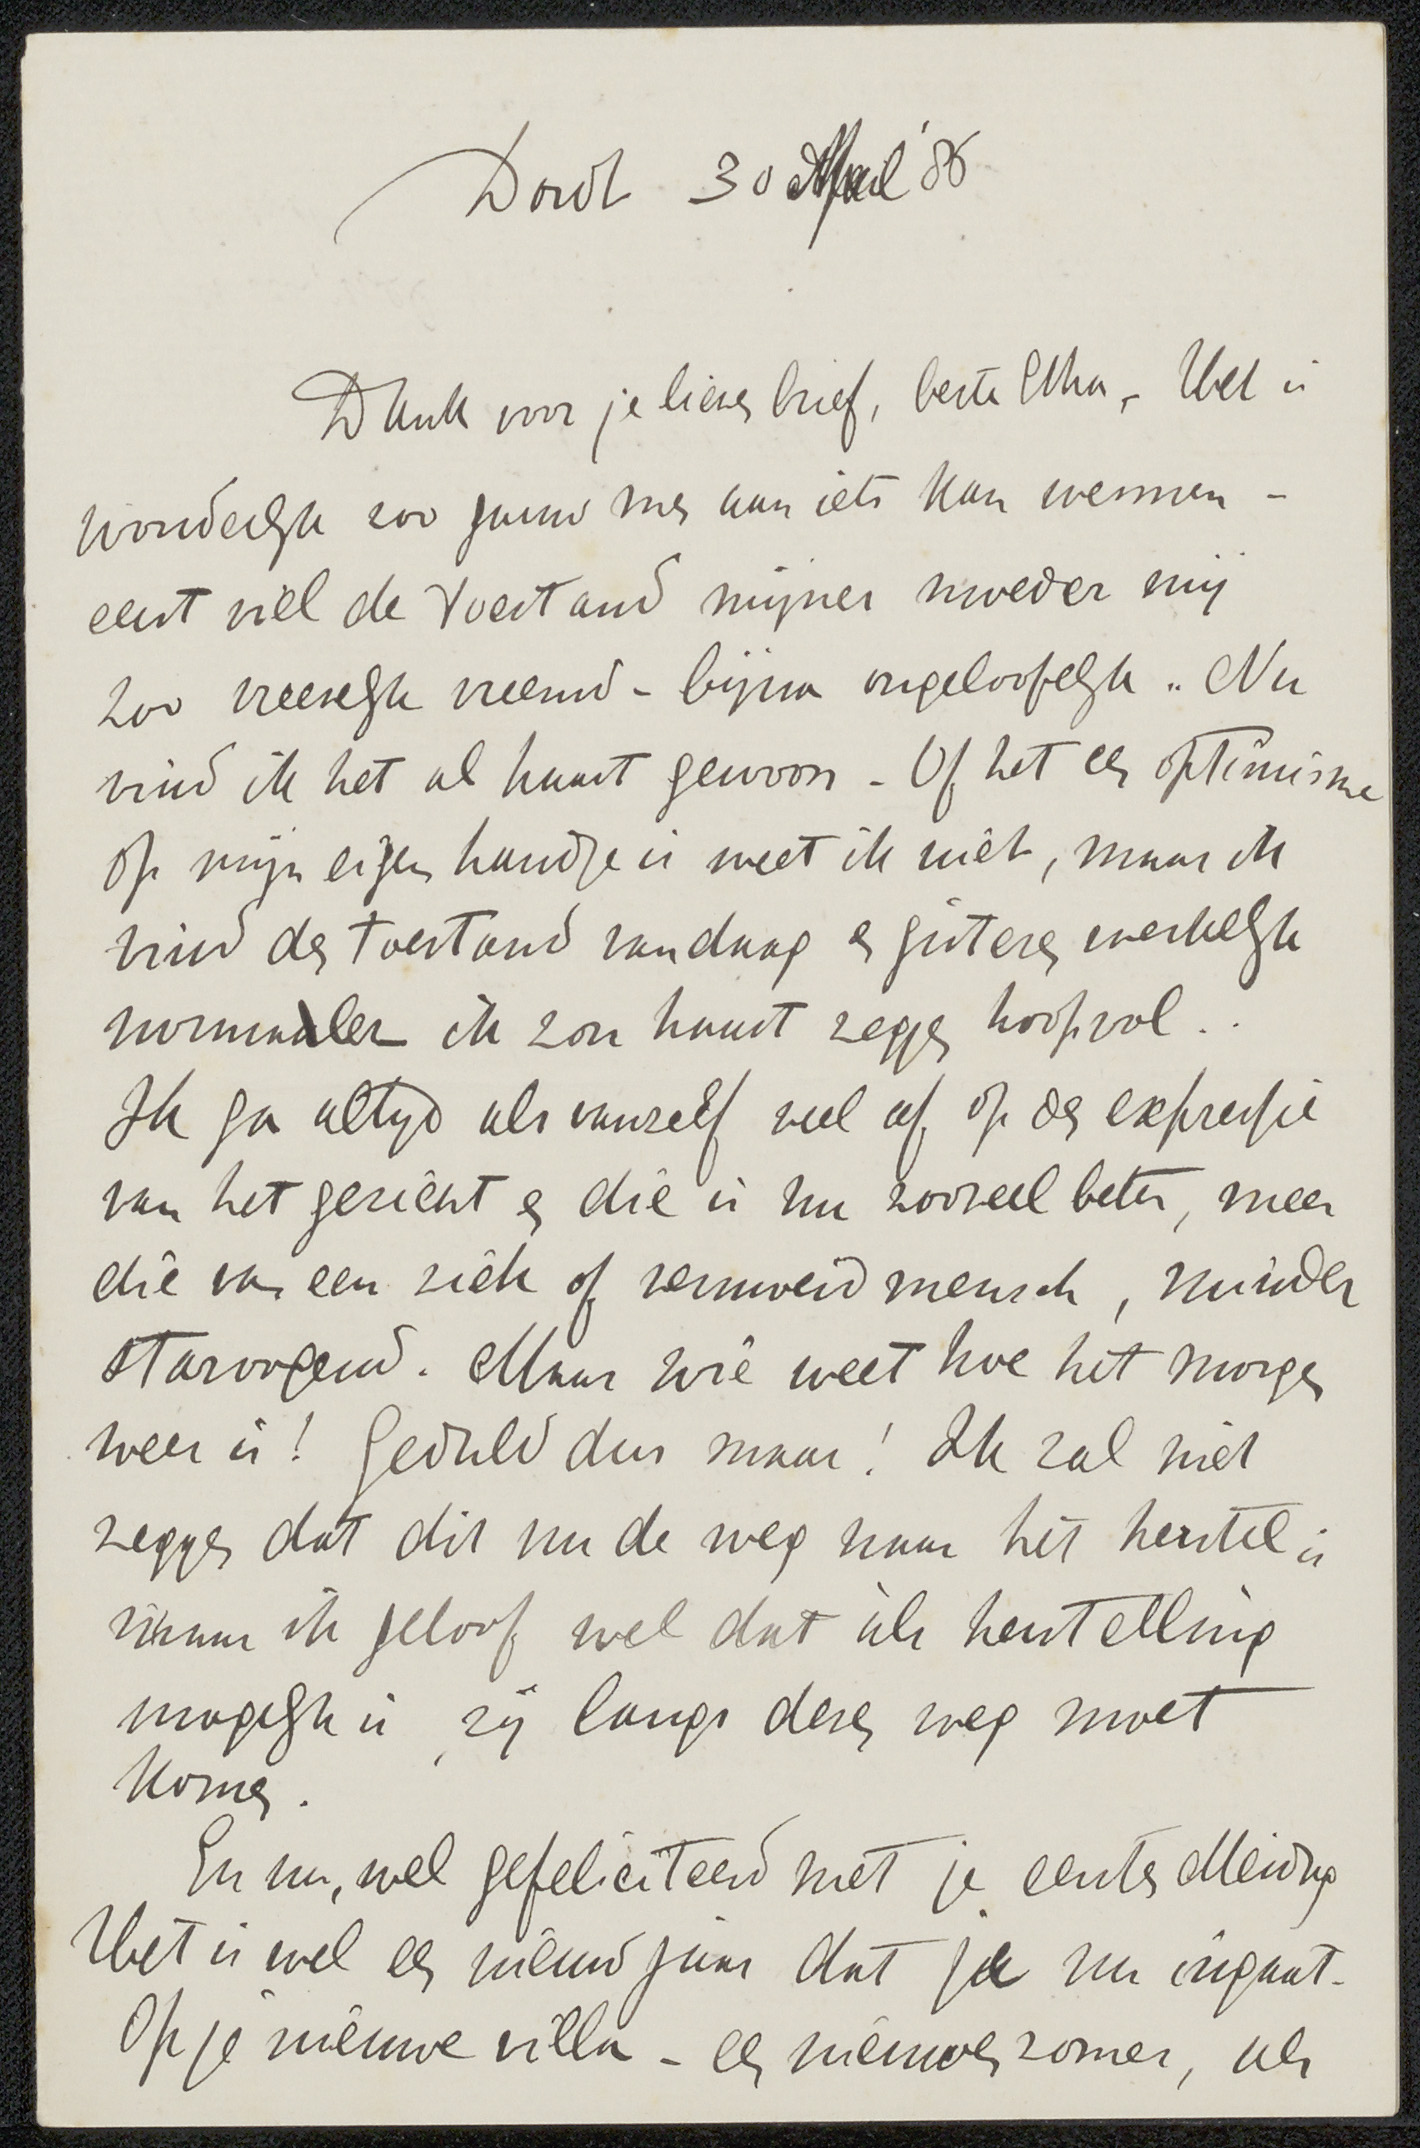 Dordt 30 April '86
Dank voor je lieven brief, beste Etha, - Het is
wonderlijk zoo gauw men aan iets kan wennen -
eerst viel de toestand mijner moeder mij
zoo vreeselijk vreemd - bijna ongeloofelijk .. Nu
vind ik het al haast gewoon - Of het een optimisme
op mijn eigen handje is weet ik niet, maar ik
vind den toestand vandaag en gisteren werkelijk
normaler ik zou haast zeggen hoopvol ..
Ik ga altijd als vanzelf veel af op den expressie
van het gezicht en die is nu zooveel beter, meer
die van een ziek of vermoeid mensch, minder
staroogend. Maar wie weet hoe het morgen
weer is! Geduld dus maar! Ik zal niet
zeggen dat dit nu de weg naar het herstel is
maar ik geloof wel dat als herstelling
mogelijk is, zij langs dezen weg moet
komen.
En nu, wel gefeliciteerd met je eersten Meidag
Het is wel een nieuw jaar dat je nu ingaat -
Op je nieuwe villa - een nieuwen zomer, als